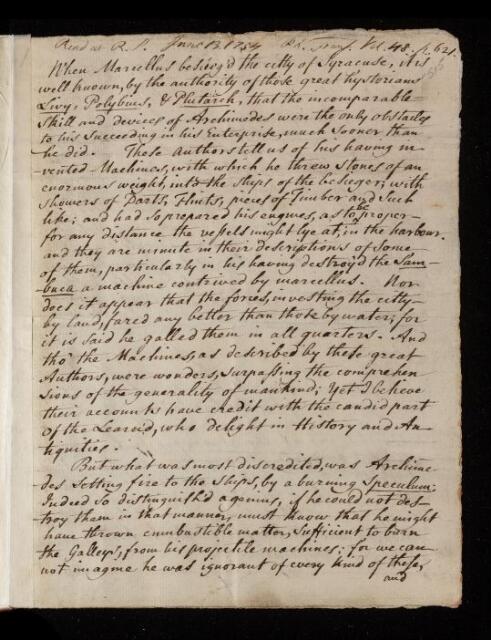 Read at R. S. June 13. 1754 Ph. Trans. Vol. 48. p. 621.
When Marcellus besieg'd the citty of Syracuse, it is
well known, by the authority of those great hystorians
Livy, Polybius, & Plutarch, that the incomparable
skill and devices of Archimedes were the only obstacles
to his succeeding in his Enterprise, much sooner than
he did. These Authors tell us of his having in-
vented Machines, with which he threw stones of an
enormous weight, into the ships of the besieger; with
showers of Darts, Flints, pieces of Timber and such
like; and had so prepared his engines, as to be proper
for any distance the vessels might lye at, in the harbour.
and they are minute in their descriptions of some
of them, particularly in his having destroy'd the Sam-
buca a machine contrived by marcellus. Nor
does it appear that the forces, investing the citty
by land, fared any better than those by water; for
it is said he galled them in all quarters. And
tho' the Machines, as described by these great
Authors, were wonders, surpassing the comprehen
sions of the generality of mankind; Yet I believe
their accounts have credit with the candid part
of the Learned, who delight in History and An-
tiquities.
But what was most discredited, was Archime-
des setting fire to the ships, by a burning Speculum:
Indeed so distinguish'd a genius, if he could not des-
troy them in that manner, must know that he might
have thrown cumbustible matter, sufficient to burn
the Galleys, from his projectile machines; for we can
not imagine he was ignorant of every kind of these,
and